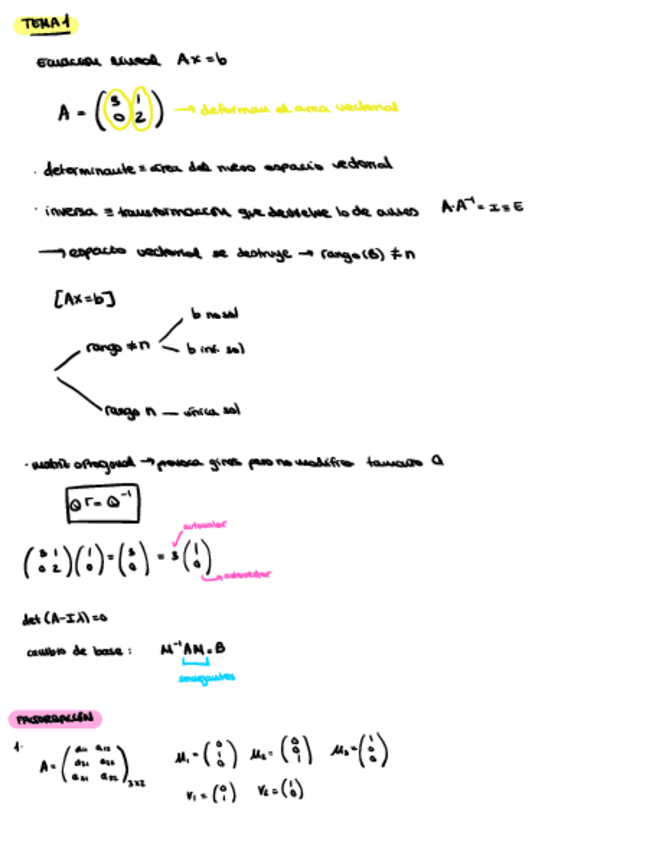 TEMA 1
ecuación lineal Ax=b
A = (3 1 / 0 2) → deforman el area vectorial
· determinante ≡ área del nuevo espacio vectorial
· inversa ≡ transformación que devuelve lo de antes A·A⁻¹ = I ≡ E
→ espacio vectorial se destruye → rango(B) ≠ n
[Ax=b]
b no sol
rango ≠ n
b inf. sol
rango n — única sol
· matriz ortogonal → provoca giros pero no modifica tamaño Q
Qᵀ = Q⁻¹
autovalor
(3 1 / 0 2)(1 / 0) = (3 / 0) = 3(1 / 0)
autovector
det(A-Iλ)=0
cambio de base: M⁻¹AM = B
semejantes
FACTORIZACIÓN
1. A = (a₁₁ a₁₂ / a₂₁ a₂₂ / a₃₁ a₃₂)₃ₓ₂ μ₁ = (0 / 1 / 0) μ₂ = (0 / 0 / 1) μ₃ = (1 / 0 / 0)
V₁ = (0 / 1) V₂ = (1 / 0)